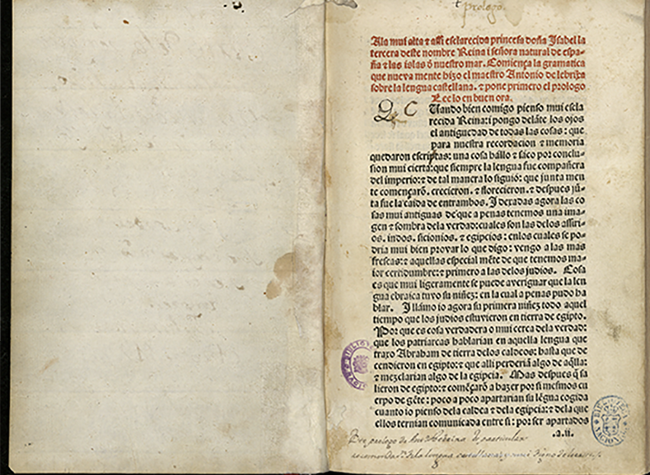 prologo.
A la mui alta ⁊ assi esclarecida princesa doña Isabel la
tercera deste nombre Reina i señora natural de espa-
ña ⁊ las islas ð nuestro mar. Comiença la gramatica
que nueva mente hizo el maestro Antonio de lebrixa
sobre la lengua castellana. ⁊ pone primero el prologo
Lee lo en buen ora.
Q C Uando bien comigo pienso mui escla
recida Reina: i pongo delãte los ojos
el antiguedad de todas las cosas: que
para nuestra recordacion ⁊ memoria
quedaron escriptas: una cosa hallo ⁊ saco por conclu-
sion mui cierta: que siempre la lengua fue compañera
del imperio: ⁊ de tal manera lo siguió: que junta men
te començarõ. crecieron. ⁊ florecieron. ⁊ despues jũ-
ta fue la caida de entrambos. I deradas agora las co
sas mui antiguas de que a penas tenemos una ima-
gen ⁊ sombra dela verdad: cuales son las delos assiri-
os. indos. sicionios. ⁊ egipcios: enlos cuales se po-
dria mui bien provar lo que digo: vengo a las mas
frescas: ⁊ aquellas especial mẽte de que tenemos ma-
ior certidumbre: ⁊ primero a las delos judios. Cosa
es que mui ligeramente se puede averiguar que la len
gua ebraica tuvo su niñez: en la cual a penas pudo ha
blar. I llámo io agora su primera niñez todo aquel
tiempo que los judios estuvieron en tierra de egipto.
Por que es cosa verdadera o mui cerca dela verdad:
que los patriarcas hablarian en aquella lengua que
traxo Abraham de tierra delos caldeos: hasta que de
cendieron en egipto: ⁊ que alli perderiã algo de aq̃lla:
⁊ mezclarian algo de la egipcia. Mas despues q̃ sa
lieron de egipto: ⁊ començarõ a hazer por si mesmos cu
erpo de gẽte: poco a poco apartarian su lẽgua cogida
cuanto io pienso dela caldea ⁊ dela egipcia: ⁊ dela que
ellos ternian comunicada entre si: por ser apartados
.a.ii.